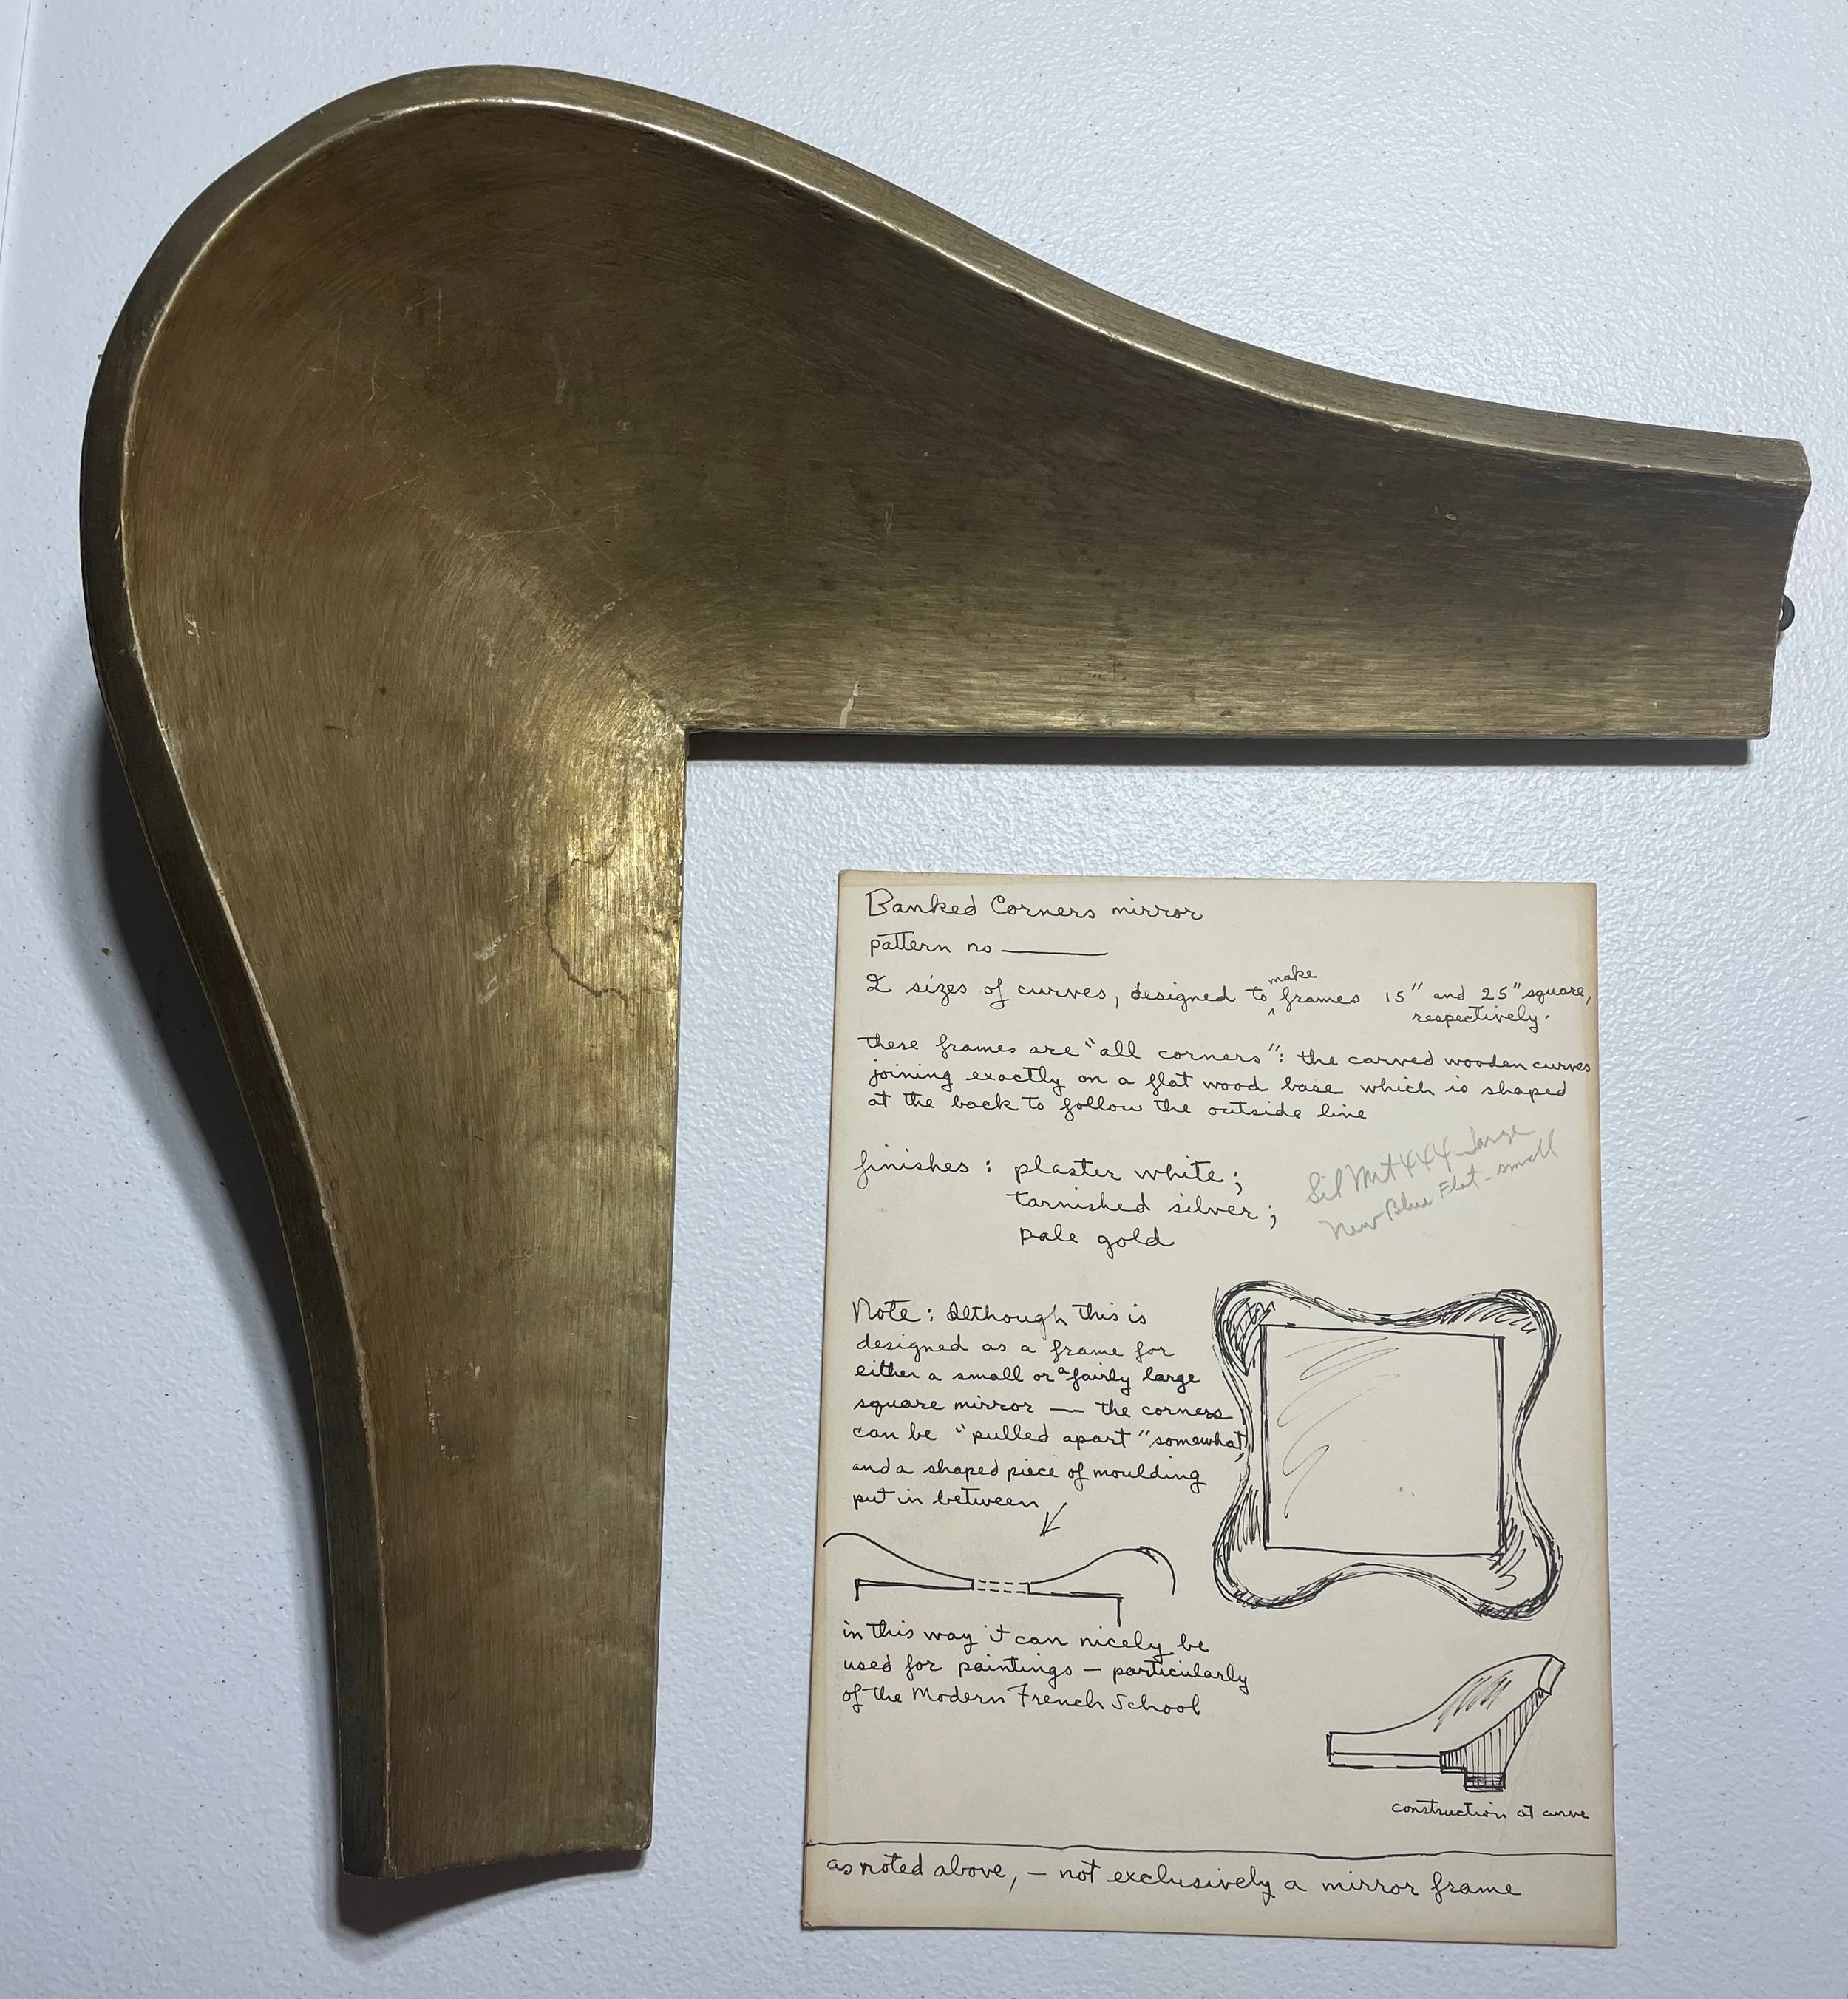 Banked Corners mirror
pattern no
make
2 sizes of curves, designed to frames 15" and 25" square,
respectively.
these frames are "all corners": the carved wooden curves
joining exactly on a flat wood base which is shaped
at the back to follow the outside line
finishes: plaster white;
tarnished silver;
pale gold
large
New Blue Flat - small
Note: Although this is
designed as a frame for
either a small or a fairly large
square mirror — the corners
can be "pulled apart" somewhat,
and a shaped piece of moulding
put in between
in this way it can nicely be
used for paintings — particularly
of the Modern French School
construction at curve
as noted above, — not exclusively a mirror frame